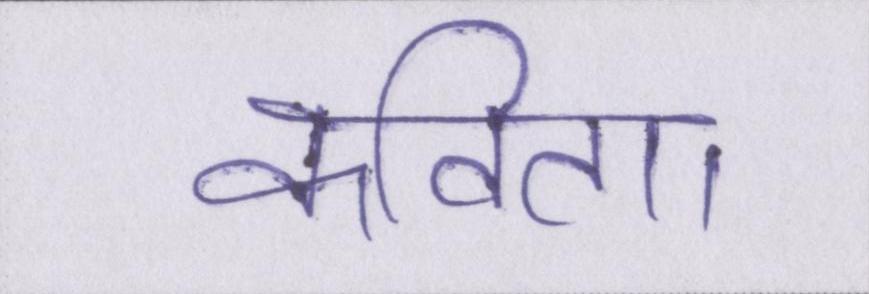 कविता।